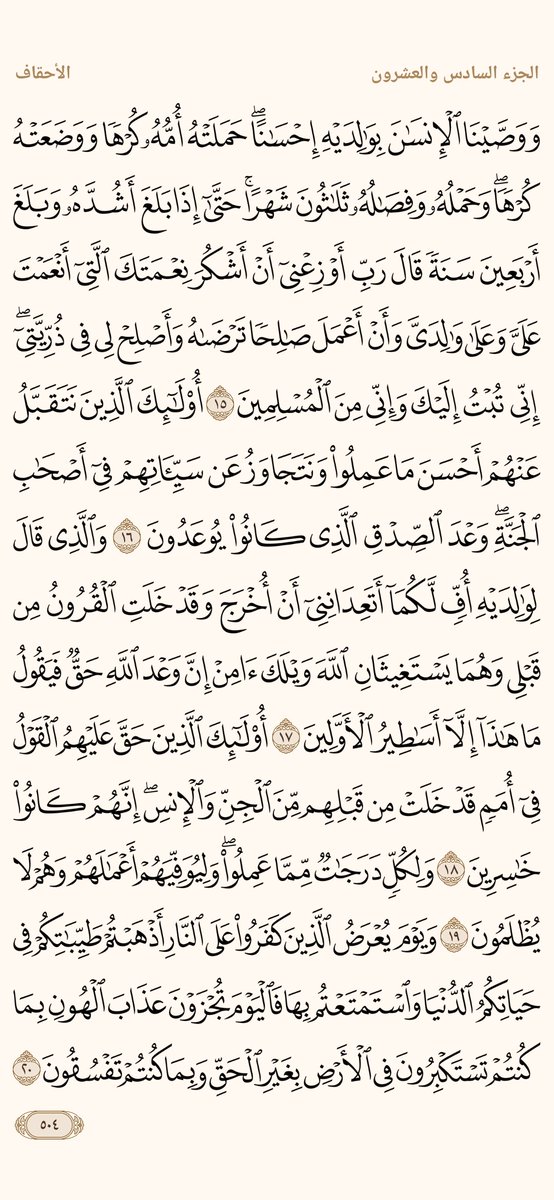 الجزء السادس والعشرون
الأحقاف
وَوَصَّيْنَا ٱلْإِنسَٰنَ بِوَٰلِدَيْهِ إِحْسَٰنًاۖ حَمَلَتْهُ أُمُّهُۥ كُرْهًا وَوَضَعَتْهُ
كُرْهًاۖ وَحَمْلُهُۥ وَفِصَٰلُهُۥ ثَلَٰثُونَ شَهْرًاۚ حَتَّىٰٓ إِذَا بَلَغَ أَشُدَّهُۥ وَبَلَغَ
أَرْبَعِينَ سَنَةً قَالَ رَبِّ أَوْزِعْنِىٓ أَنْ أَشْكُرَ نِعْمَتَكَ ٱلَّتِىٓ أَنْعَمْتَ
عَلَىَّ وَعَلَىٰ وَٰلِدَىَّ وَأَنْ أَعْمَلَ صَٰلِحًا تَرْضَىٰهُ وَأَصْلِحْ لِى فِى ذُرِّيَّتِىٓۖ
إِنِّى تُبْتُ إِلَيْكَ وَإِنِّى مِنَ ٱلْمُسْلِمِينَ ١٥ أُو۟لَٰٓئِكَ ٱلَّذِينَ نَتَقَبَّلُ
عَنْهُمْ أَحْسَنَ مَا عَمِلُوا۟ وَنَتَجَاوَزُ عَن سَيِّـَٔاتِهِمْ فِىٓ أَصْحَٰبِ
ٱلْجَنَّةِۖ وَعْدَ ٱلصِّدْقِ ٱلَّذِى كَانُوا۟ يُوعَدُونَ ١٦ وَٱلَّذِى قَالَ
لِوَٰلِدَيْهِ أُفٍّ لَّكُمَآ أَتَعِدَانِنِىٓ أَنْ أُخْرَجَ وَقَدْ خَلَتِ ٱلْقُرُونُ مِن
قَبْلِى وَهُمَا يَسْتَغِيثَانِ ٱللَّهَ وَيْلَكَ ءَامِنْ إِنَّ وَعْدَ ٱللَّهِ حَقٌّ فَيَقُولُ
مَا هَٰذَآ إِلَّآ أَسَٰطِيرُ ٱلْأَوَّلِينَ ١٧ أُو۟لَٰٓئِكَ ٱلَّذِينَ حَقَّ عَلَيْهِمُ ٱلْقَوْلُ
فِىٓ أُمَمٍ قَدْ خَلَتْ مِن قَبْلِهِم مِّنَ ٱلْجِنِّ وَٱلْإِنسِۖ إِنَّهُمْ كَانُوا۟
خَٰسِرِينَ ١٨ وَلِكُلٍّ دَرَجَٰتٌ مِّمَّا عَمِلُوا۟ۖ وَلِيُوَفِّيَهُمْ أَعْمَٰلَهُمْ وَهُمْ لَا
يُظْلَمُونَ ١٩ وَيَوْمَ يُعْرَضُ ٱلَّذِينَ كَفَرُوا۟ عَلَى ٱلنَّارِ أَذْهَبْتُمْ طَيِّبَٰتِكُمْ فِى
حَيَاتِكُمُ ٱلدُّنْيَا وَٱسْتَمْتَعْتُم بِهَا فَٱلْيَوْمَ تُجْزَوْنَ عَذَابَ ٱلْهُونِ بِمَا
كُنتُمْ تَسْتَكْبِرُونَ فِى ٱلْأَرْضِ بِغَيْرِ ٱلْحَقِّ وَبِمَا كُنتُمْ تَفْسُقُونَ ٢٠
٥٠٤